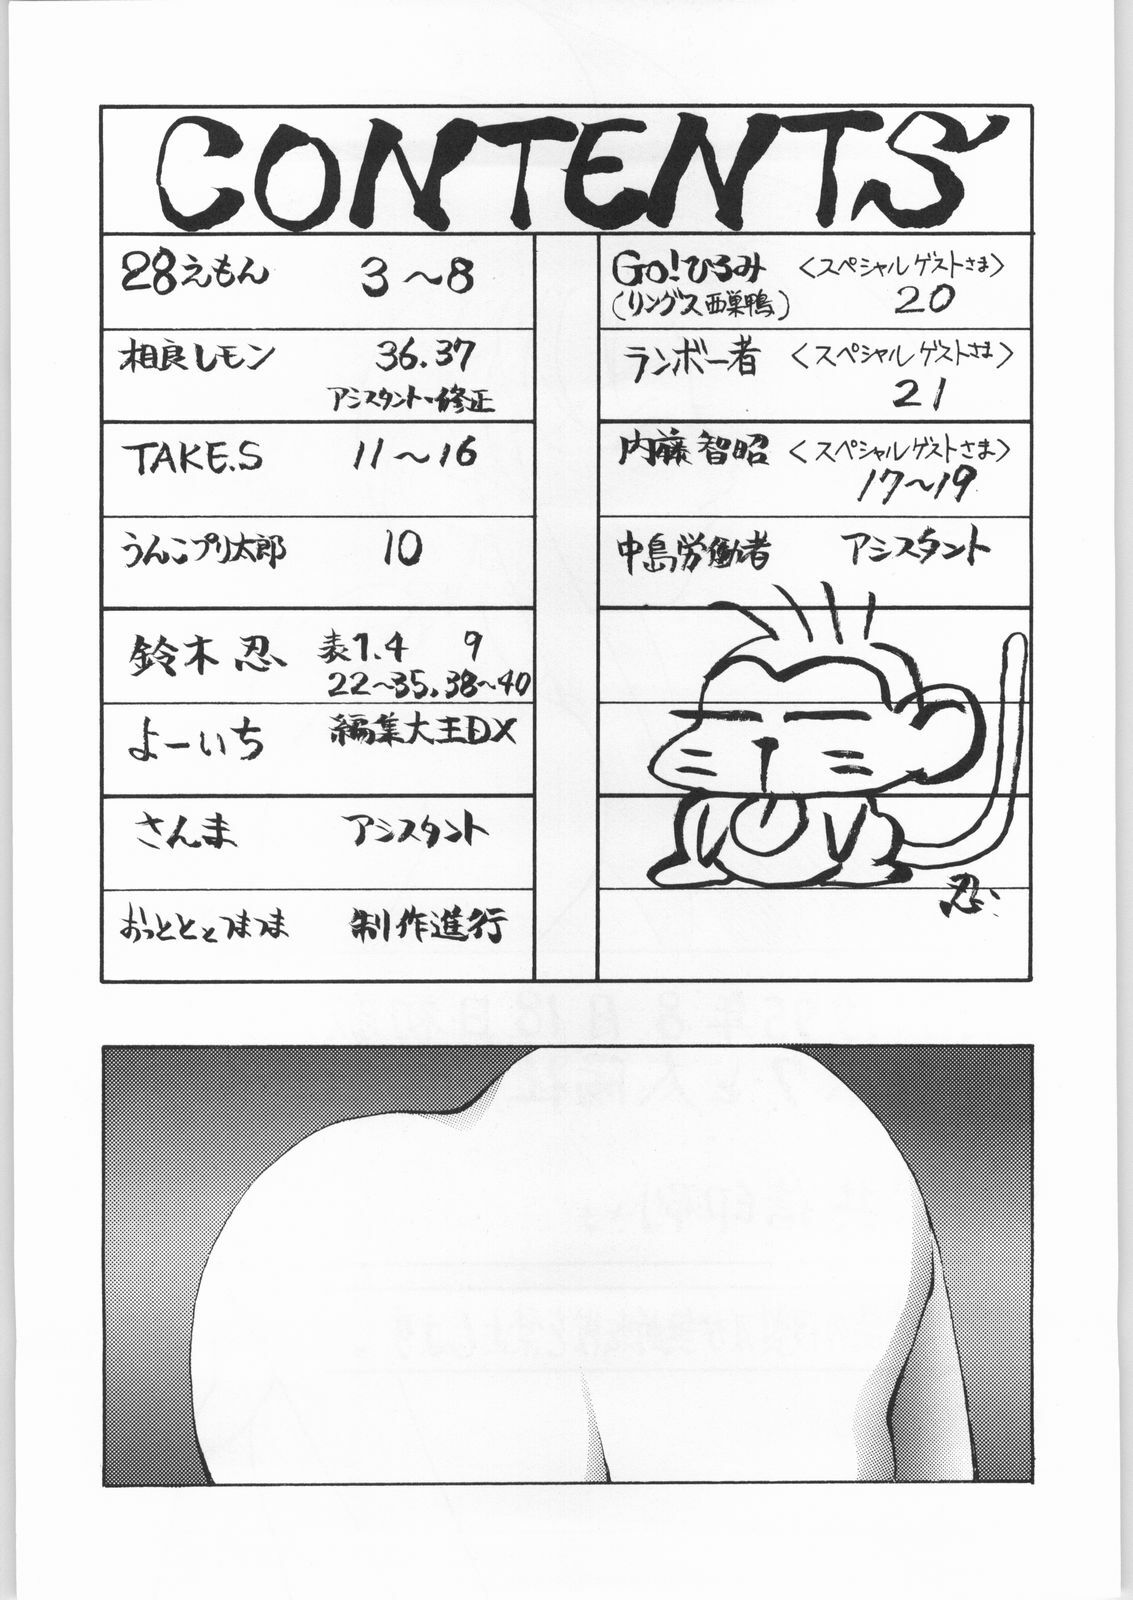 CONTENTS
28えもん 3～8
相良レモン 36.37
アシスタント・修正
TAKE.S 11～16
うんこプリ太郎 10
鈴木 忍 表1.4 9
22～35.38～40
よーいち 編集大王DX
さんま アシスタント
おっとととつまつま 制作進行
Go!ひろみ <スペシャルゲストさま>
(リングス西巣鴨) 20
ランボー者 <スペシャルゲストさま>
21
内藤智昭 <スペシャルゲストさま>
17～19
中島労働者 アシスタント
忍